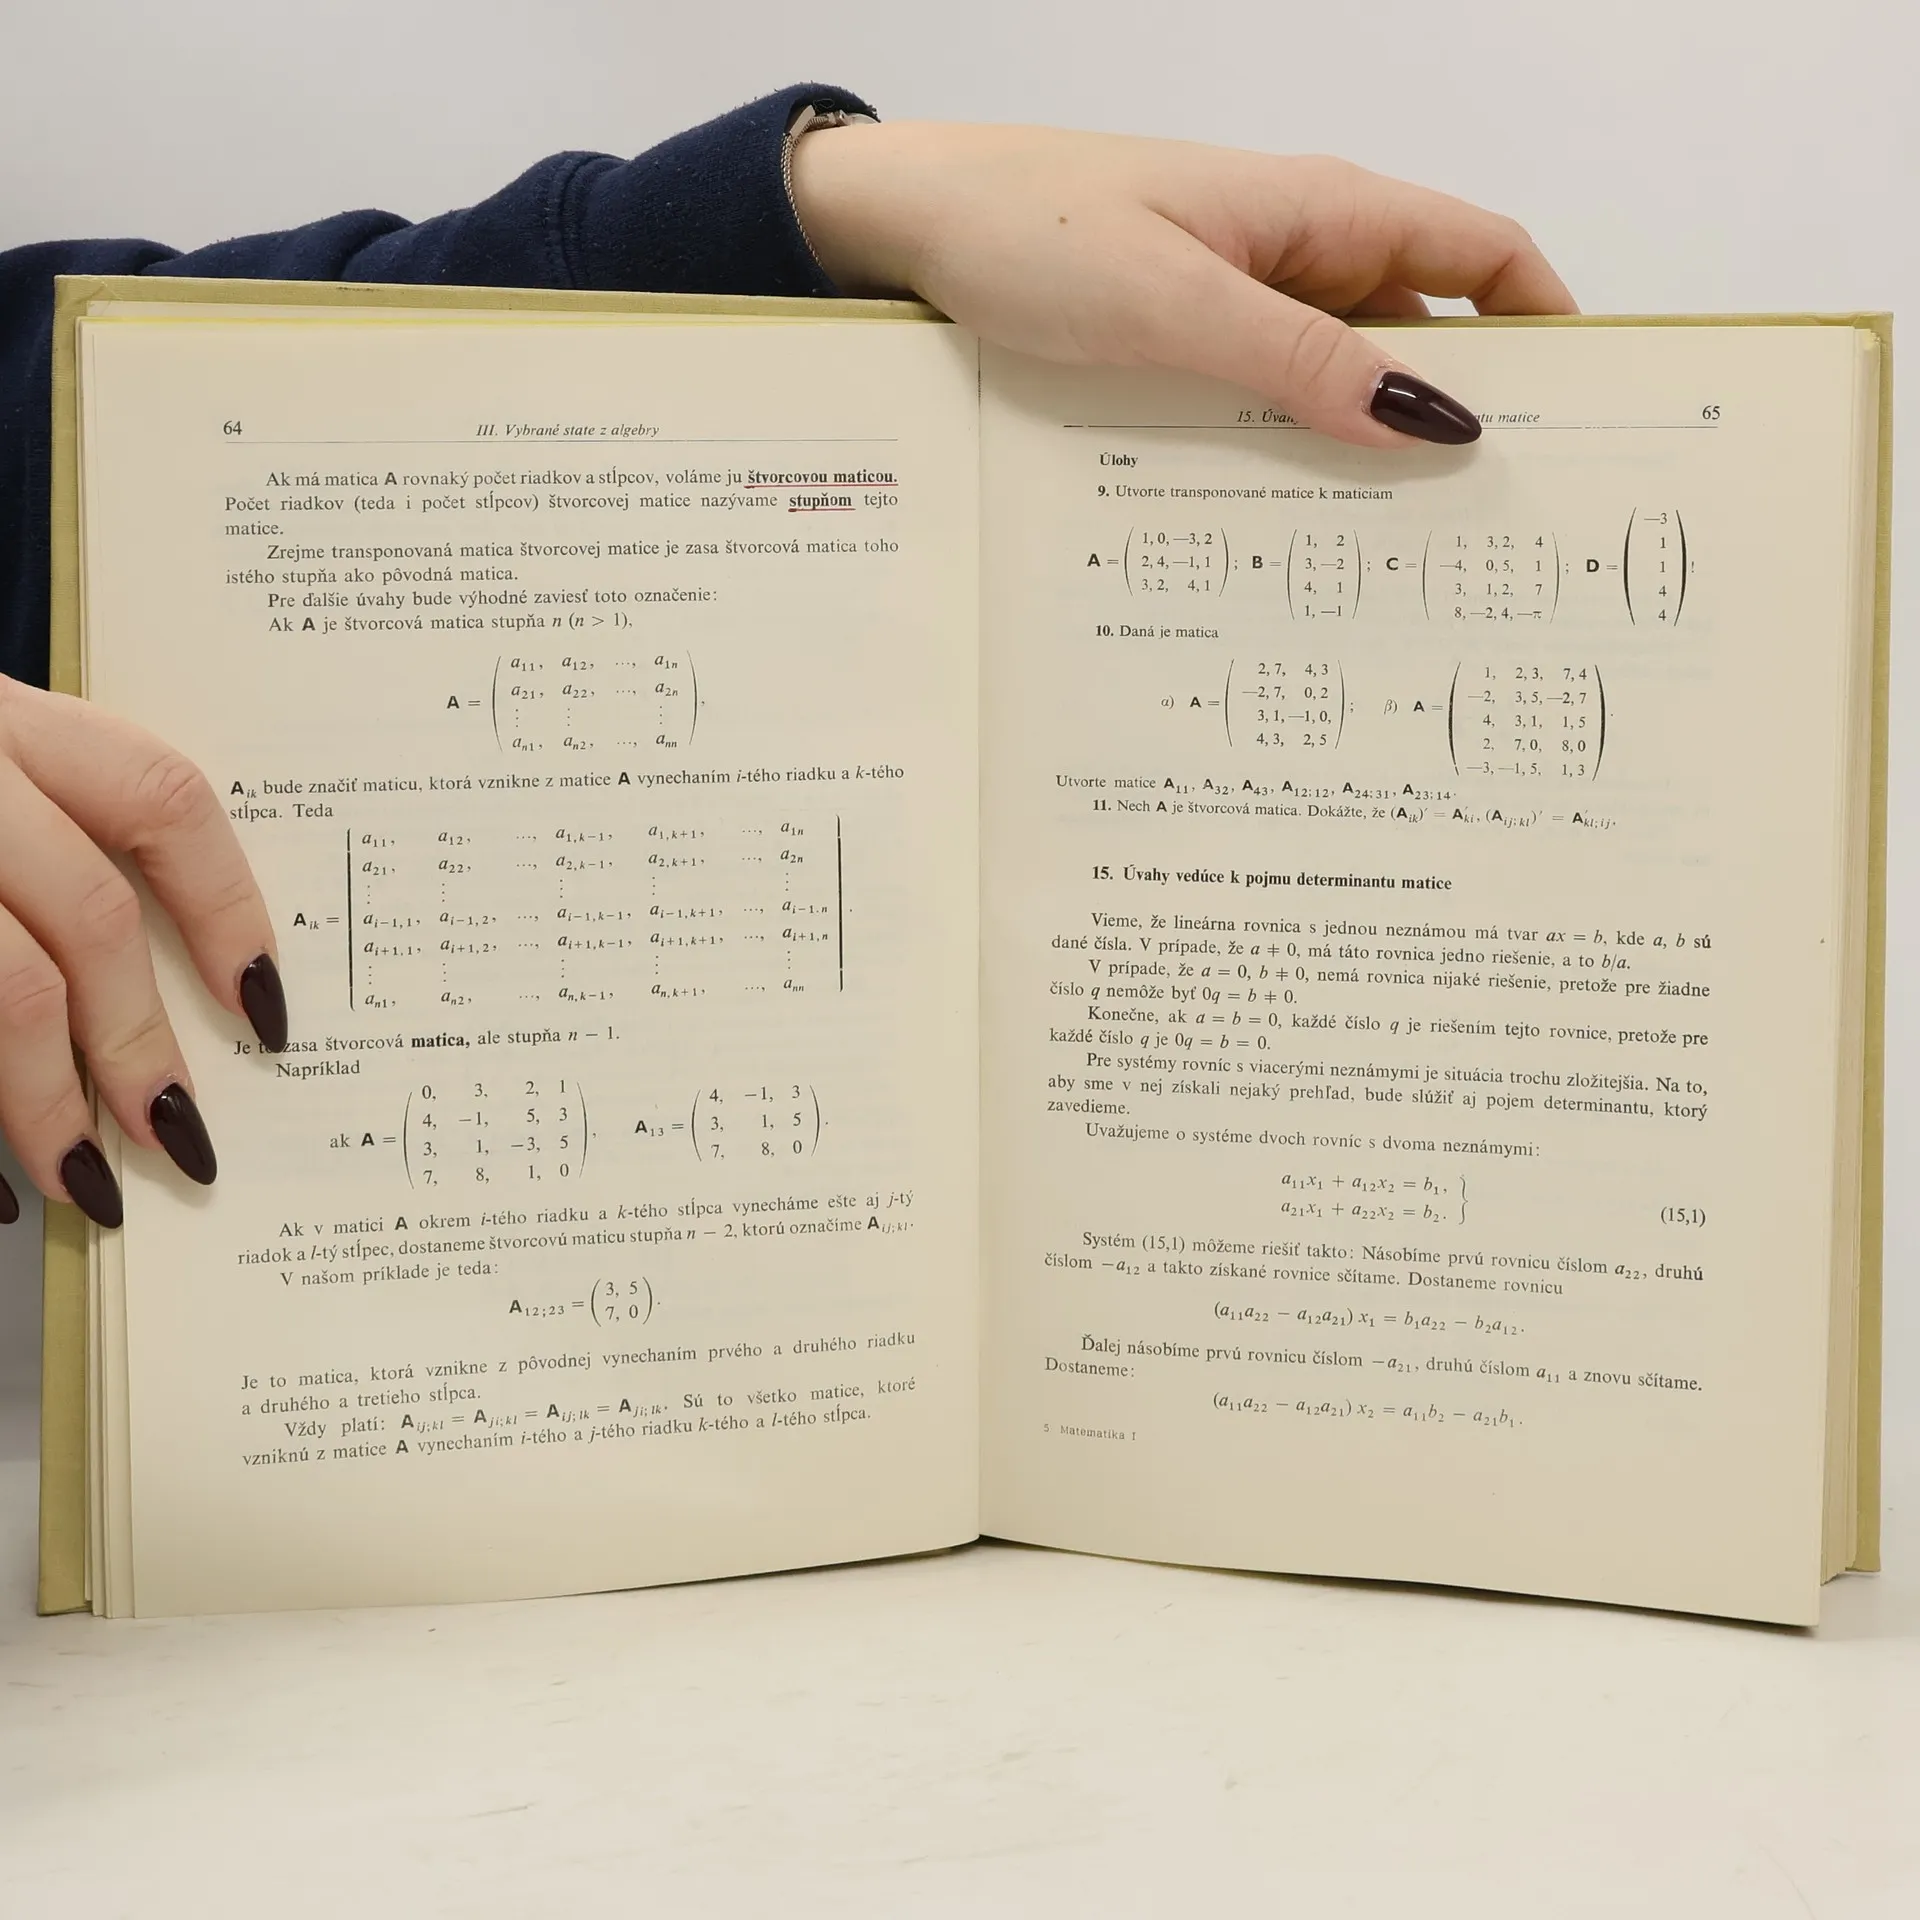 64
III. Vybrané state z algebry
Ak má matica A rovnaký počet riadkov a stĺpcov, voláme ju štvorcovou maticou.
Počet riadkov (teda i počet stĺpcov) štvorcovej matice nazývame stupňom tejto
matice.
Zrejme transponovaná matica štvorcovej matice je zasa štvorcová matica toho
istého stupňa ako pôvodná matica.
Pre ďalšie úvahy bude výhodné zaviesť toto označenie:
Ak A je štvorcová matica stupňa n (n > 1),
a11, a12, ..., a1n
a21, a22, ..., a2n
A =
⋮ ⋮ ⋮
an1, an2, ..., ann
Aik bude značiť maticu, ktorá vznikne z matice A vynechaním i-tého riadku a k-tého
stĺpca. Teda
a11, a12, ..., a1,k−1, a1,k+1, ..., a1n
a21, a22, ..., a2,k−1, a2,k+1, ..., a2n
⋮ ⋮ ⋮ ⋮ ⋮
Aik = ai−1,1, ai−1,2, ..., ai−1,k−1, ai−1,k+1, ..., ai−1.n
ai+1,1, ai+1,2, ..., ai+1,k−1, ai+1,k+1, ..., ai+1,n
⋮ ⋮ ⋮ ⋮ ⋮
an1, an2, ..., an,k−1, an,k+1, ..., ann
Je zasa štvorcová matica, ale stupňa n − 1.
Napríklad
0, 3, 2, 1
4, −1, 5, 3
ak A =
3, 1, −3, 5
7, 8, 1, 0
4, −1, 3
A13 = 3, 1, 5
7, 8, 0
Ak v matici A okrem i-tého riadku a k-tého stĺpca vynecháme ešte aj j-tý
riadok a l-tý stĺpec, dostaneme štvorcovú maticu stupňa n − 2, ktorú označíme Aij;kl.
V našom príklade je teda:
A12;23 = (3, 5
7, 0).
Je to matica, ktorá vznikne z pôvodnej vynechaním prvého a druhého riadku
a druhého a tretieho stĺpca.
Vždy platí: Aij;kl = Aji;kl = Aij;lk = Aji;lk. Sú to všetko matice, ktoré
vzniknú z matice A vynechaním i-tého a j-tého riadku k-tého a l-tého stĺpca.
15. matice
65
Úlohy
9. Utvorte transponované matice k maticiam
A =
1, 0, —3, 2
2, 4, —1, 1
3, 2, 4, 1
; B =
1, 2
3, —2
4, 1
1, —1
; C =
1, 3, 2, 4
—4, 0, 5, 1
3, 1, 2, 7
8, —2, 4, —π
; D =
—3
1
1
4
4
!
10. Daná je matica
α) A =
2, 7, 4, 3
—2, 7, 0, 2
3, 1, —1, 0,
4, 3, 2, 5
;
β) A =
1, 2, 3, 7, 4
—2, 3, 5, —2, 7
4, 3, 1, 1, 5
2, 7, 0, 8, 0
—3, —1, 5, 1, 3
.
Utvorte matice A11, A32, A43, A12;12, A24;31, A23;14.
11. Nech A je štvorcová matica. Dokážte, že (Aik)′ = A′ki, (Aij;kl)′ = A′kl;ij.
15. Úvahy vedúce k pojmu determinantu matice
Vieme, že lineárna rovnica s jednou neznámou má tvar ax = b, kde a, b sú
dané čísla. V prípade, že a ≠ 0, má táto rovnica jedno riešenie, a to b/a.
V prípade, že a = 0, b ≠ 0, nemá rovnica nijaké riešenie, pretože pre žiadne
číslo q nemôže byť 0q = b ≠ 0.
Konečne, ak a = b = 0, každé číslo q je riešením tejto rovnice, pretože pre
každé číslo q je 0q = b = 0.
Pre systémy rovníc s viacerými neznámymi je situácia trochu zložitejšia. Na to,
aby sme v nej získali nejaký prehľad, bude slúžiť aj pojem determinantu, ktorý
zavedieme.
Uvažujeme o systéme dvoch rovníc s dvoma neznámymi:
a11x1 + a12x2 = b1,
a21x1 + a22x2 = b2.
(15,1)
Systém (15,1) môžeme riešiť takto: Násobíme prvú rovnicu číslom a22, druhú
číslom −a12 a takto získané rovnice sčítame. Dostaneme rovnicu
(a11a22 − a12a21) x1 = b1a22 − b2a12.
Ďalej násobíme prvú rovnicu číslom −a21, druhú číslom a11 a znovu sčítame.
Dostaneme:
(a11a22 − a12a21) x2 = a11b2 − a21b1.
5 Matematika I